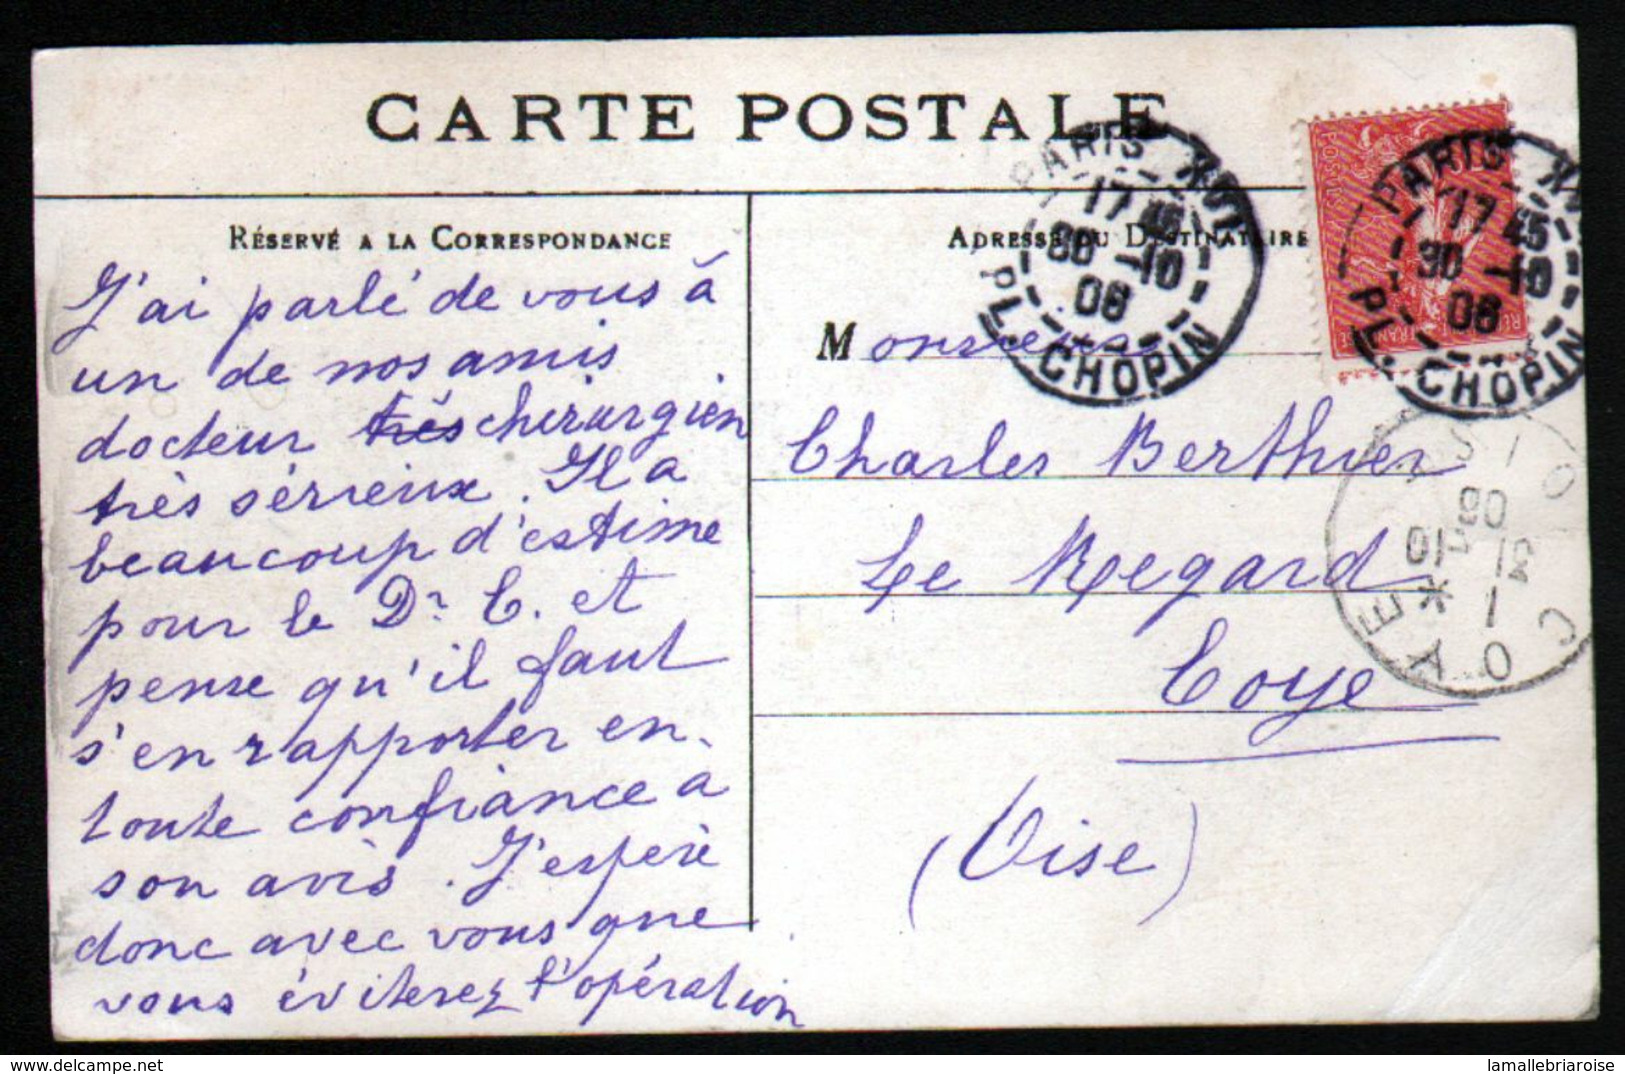 CARTE POSTALE
RÉSERVÉ A LA CORRESPONDANCE
J'ai parlé de vous à
un de nos amis
docteur très chirurgien
très sérieux. Il a
beaucoup d'estime
pour le Dr C. et
pense qu'il faut
s'en rapporter en
toute confiance à
son avis. J'espère
donc avec vous que
vous éviterez l'opération
ADRESSE DU DESTINATAIRE
Monsieur
Charles Berthier
Le Regard
Coye
(Oise)
PARIS XVI
17 45
30 -10
06
PL. CHOPIN
PARIS
17 45
30 -10
06
PL. CHOPIN
COYE OISE
31 10
06
lamallebriaroise